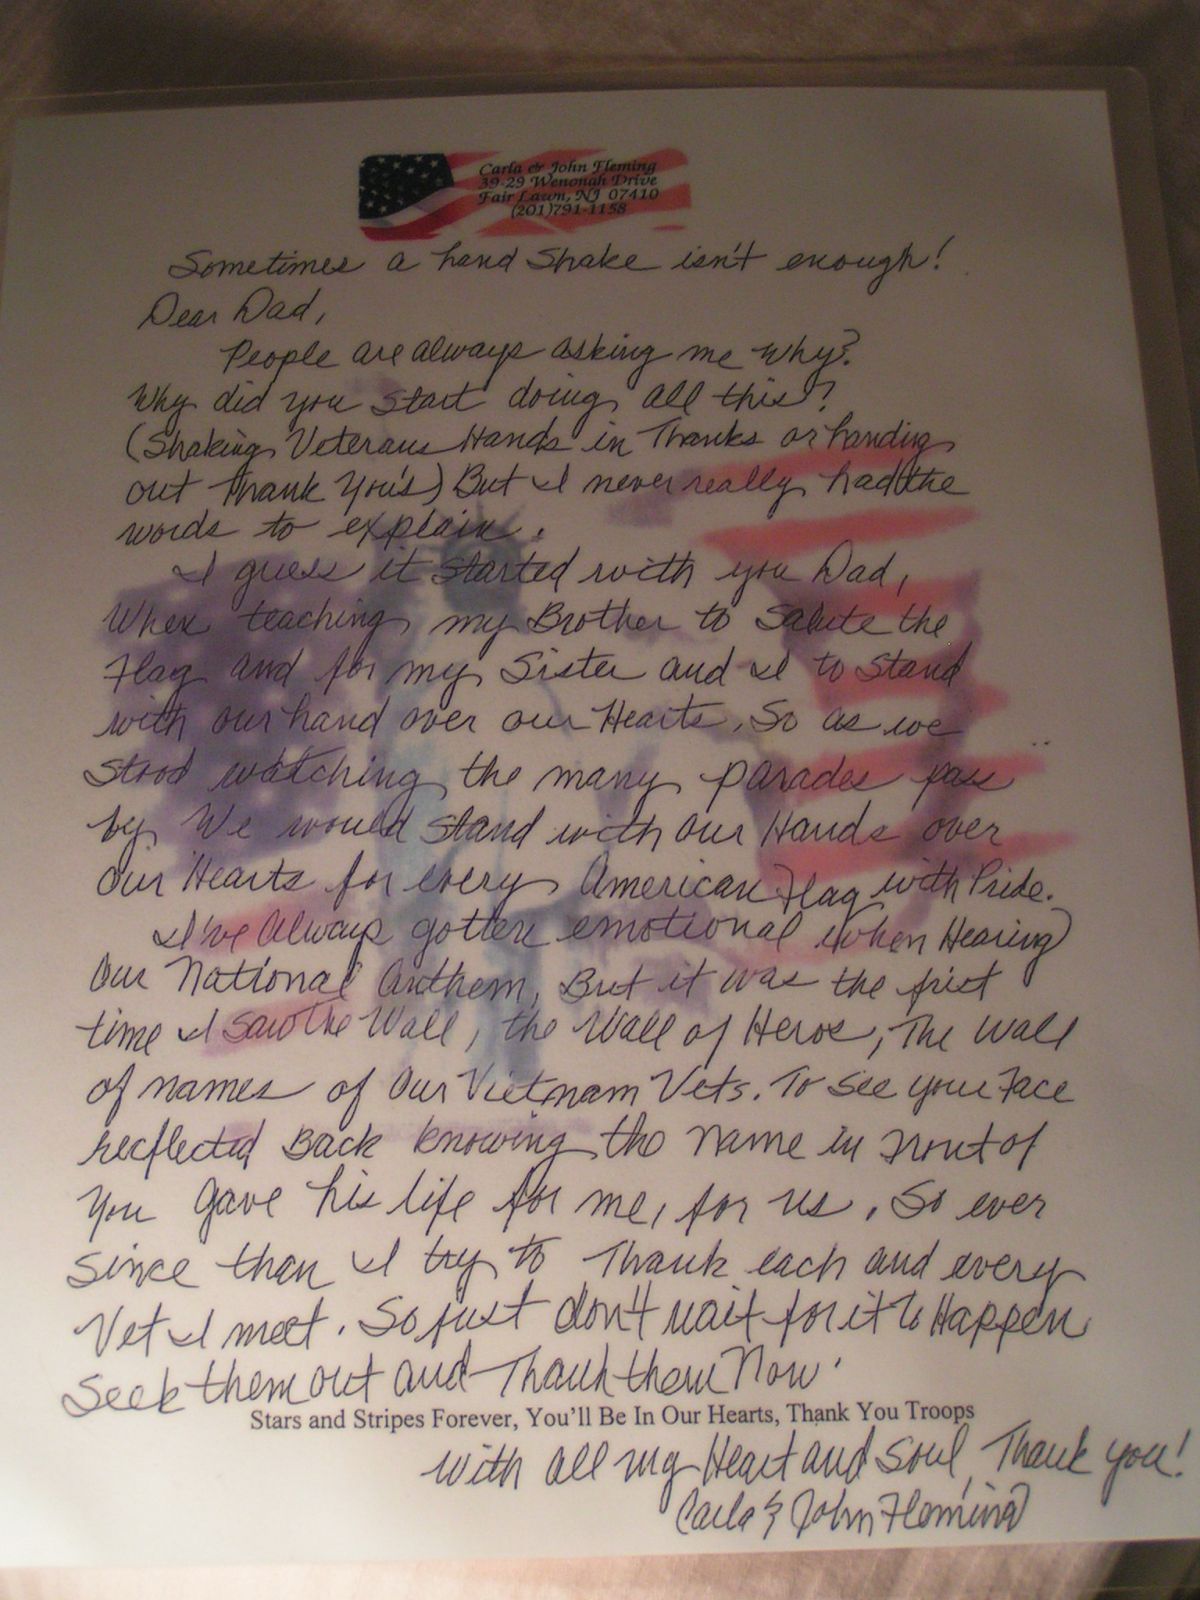 Carla & John Fleming
39-29 Wenonah Drive
Fair Lawn, NJ 07410
(201)791-1158
Sometimes a hand shake isn't enough!
Dear Dad,
People are always asking me why?
Why did you start doing all this?
(Shaking Veterans Hands in Thanks or handing
out Thank You's) But I never really had the
words to explain.
I guess it started with you Dad,
When teaching my Brother to Salute the
Flag and for my Sister and I to Stand
with our hand over our Hearts. So as we
Stood watching the many parades pass
by We would Stand with our Hands over
our Hearts for every American Flag with Pride.
I've Always gotten emotional when Hearing
Our National Anthem, But it was the first
time I saw the Wall, the Wall of Heros, The Wall
of names of Our Vietnam Vets. To see your Face
reflected Back knowing the name in front of
You gave his life for me, for us. So ever
since than I try to Thank each and every
Vet I meet. So just don't wait for it to Happen
Seek them out and Thank them Now.
Stars and Stripes Forever, You'll Be In Our Hearts, Thank You Troops
With all my Heart and Soul, Thank you!
Carla & John Fleming